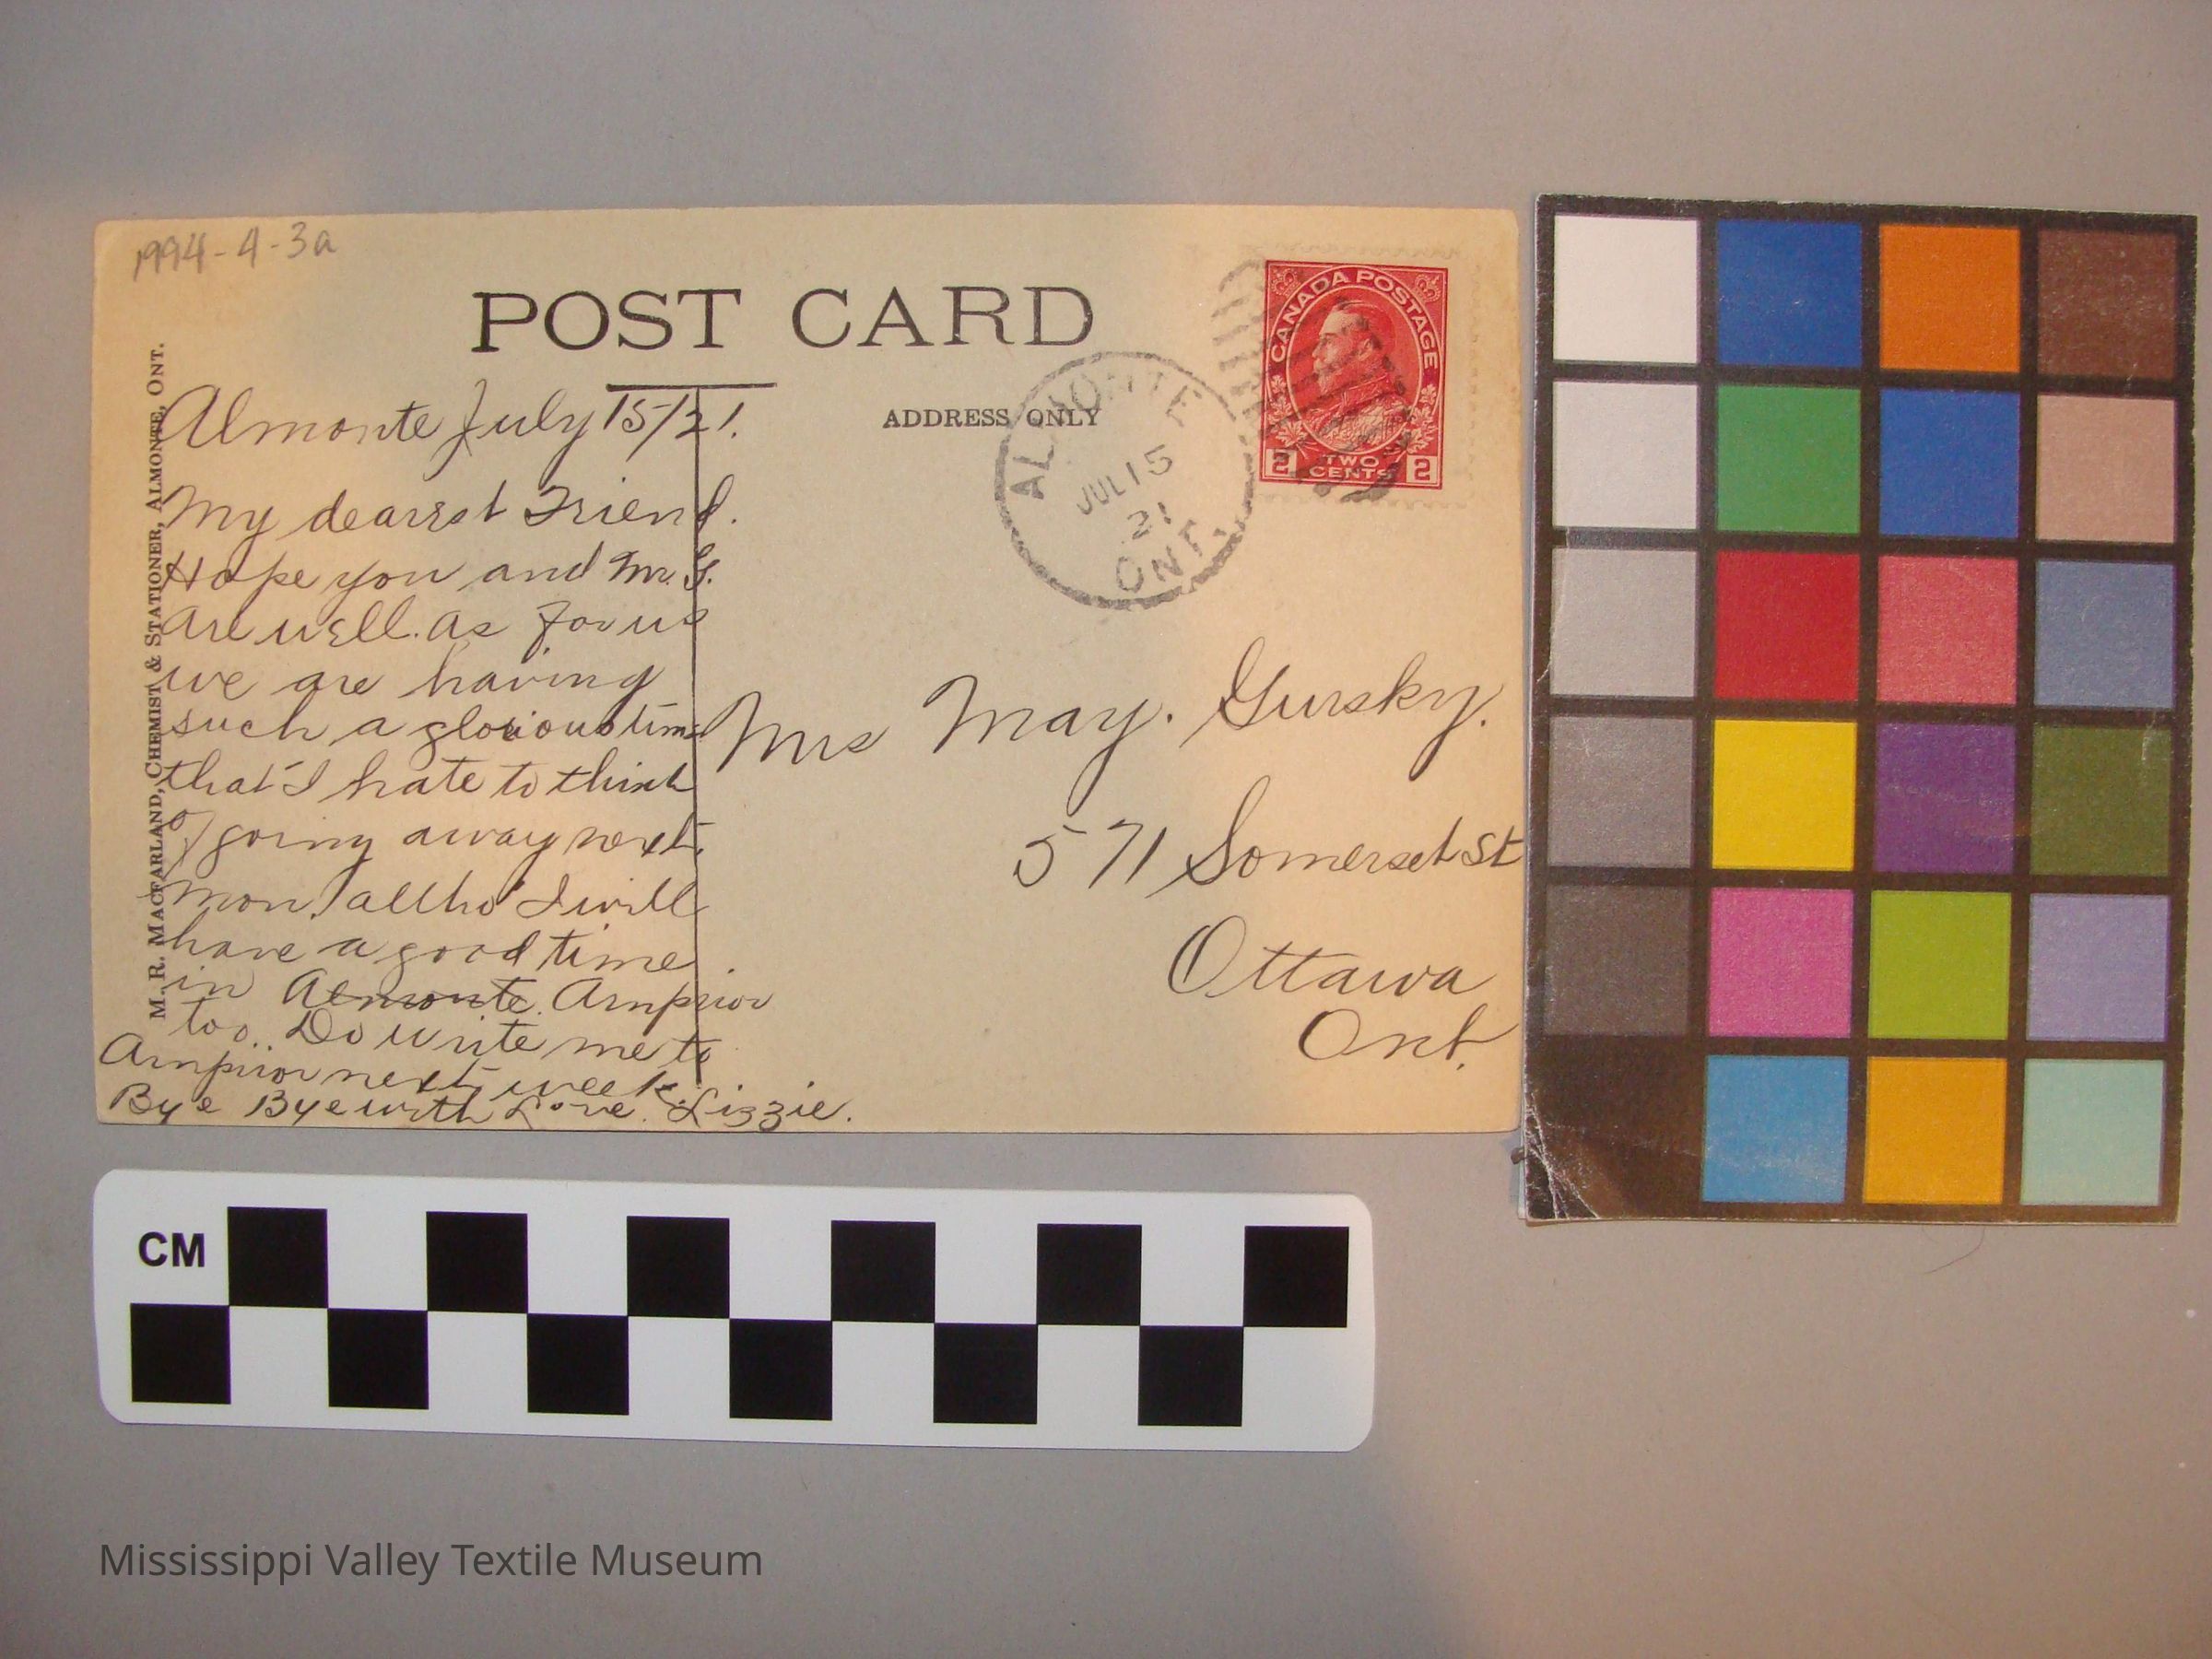 1994-4-3a
POST CARD
ADDRESS ONLY
M. R. MACFARLAND, CHEMIST & STATIONER, ALMONTE, ONT.
CANADA POSTAGE
2 TWO CENTS 2
ALMONTE
JUL 15
21
ONT.
Almonte July 15/21.
My dearest Friend.
Hope you and Mr. G.
are well. as for us
we are having
such a glorious time
that I hate to think
of going away next
mon. altho' I will
have a good time
in Almonte. Arnprior
too. Do write me to
Arnprior next week.
Bye Bye with Love. Lizzie.
Mrs May. Gursky.
571 Somerset St
Ottawa
Ont.
CM
Mississippi Valley Textile Museum